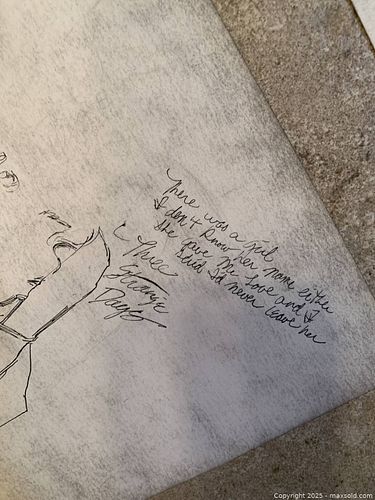 There was a girl
I don't know her name either
She gave me love and I
said I'd never leave her
Three
Strange
Days
Copyright © 2025 - maxsold.com